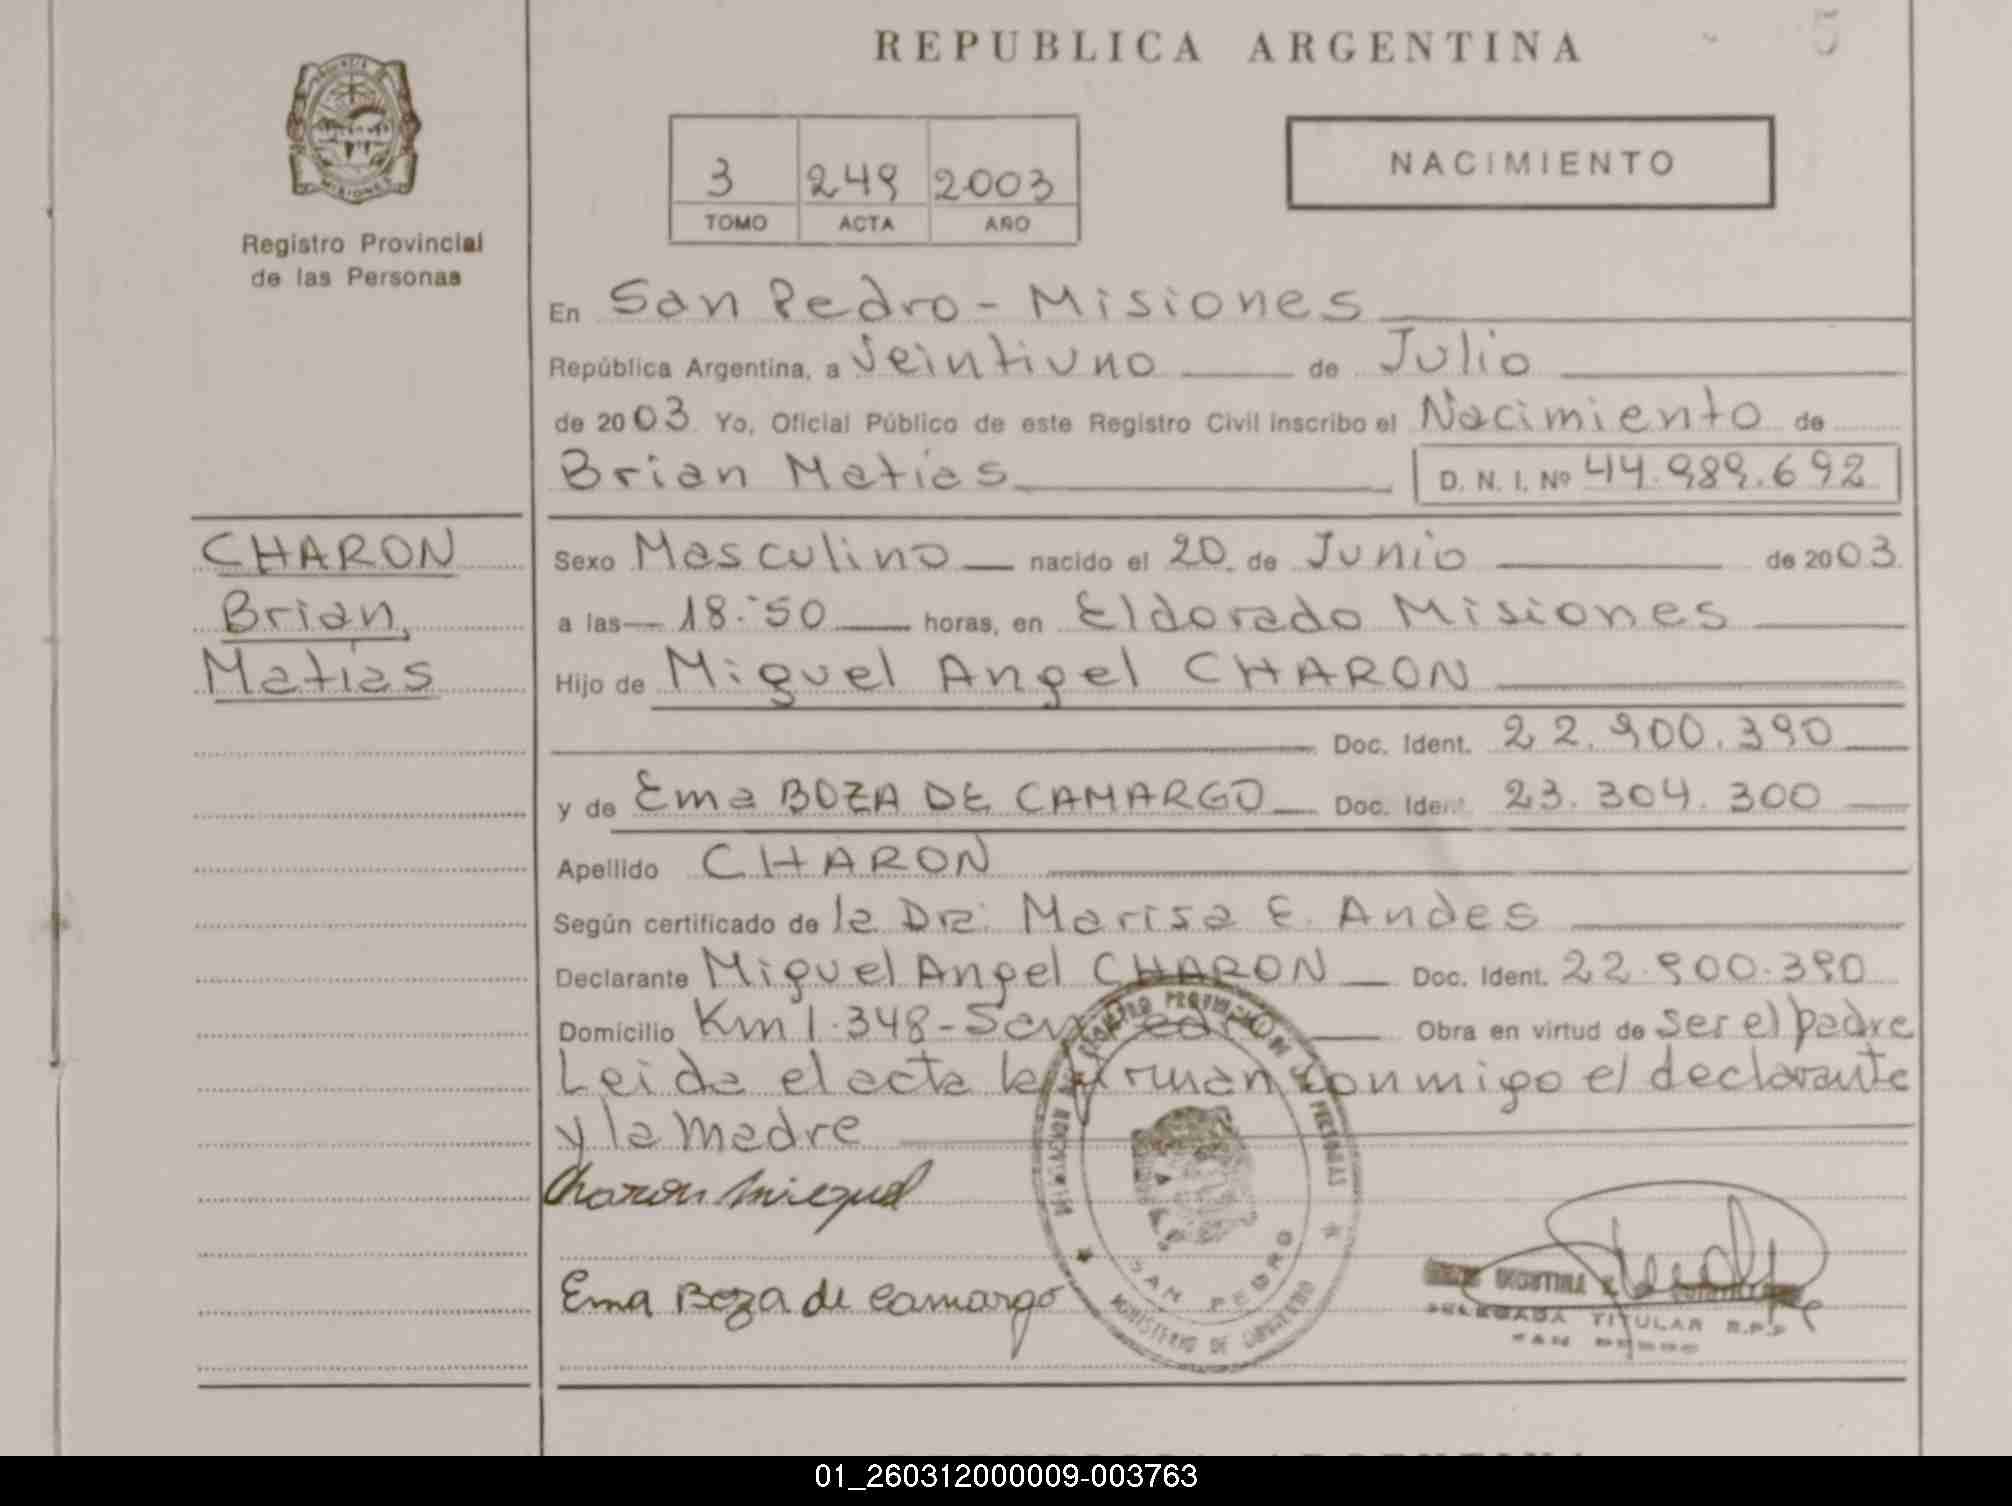 REPUBLICA ARGENTINA
MISIONES
Registro Provincial
de las Personas
3 249 2003
TOMO ACTA AÑO
NACIMIENTO
En San Pedro - Misiones
República Argentina, a Veintiuno de Julio
de 2003 Yo, Oficial Público de este Registro Civil inscribo el Nacimiento de
Brian Matías D. N. I. Nº 44.989.692
CHARON
Brian,
Matías
Sexo Masculino nacido el 20 de Junio de 2003.
a las 18:50 horas, en Eldorado Misiones
Hijo de Miguel Angel CHARON
Doc. Ident. 22.900.390
y de Ema BOZA DE CAMARGO Doc. Ident. 23.304.300
Apellido CHARON
Según certificado de la Dra: Marisa E. Andes
Declarante Miguel Angel CHARON Doc. Ident. 22.900.390
Domicilio Km 1.348 - San Pedro Obra en virtud de ser el padre
Leida el acta la firman conmigo el declarante
y la madre
Charon Miguel
Ema Boza de Camargo
SAN PEDRO
MINISTERIO DE GOBIERNO
DELEGADA TITULAR R.P.P
SAN PEDRO
01_260312000009-003763